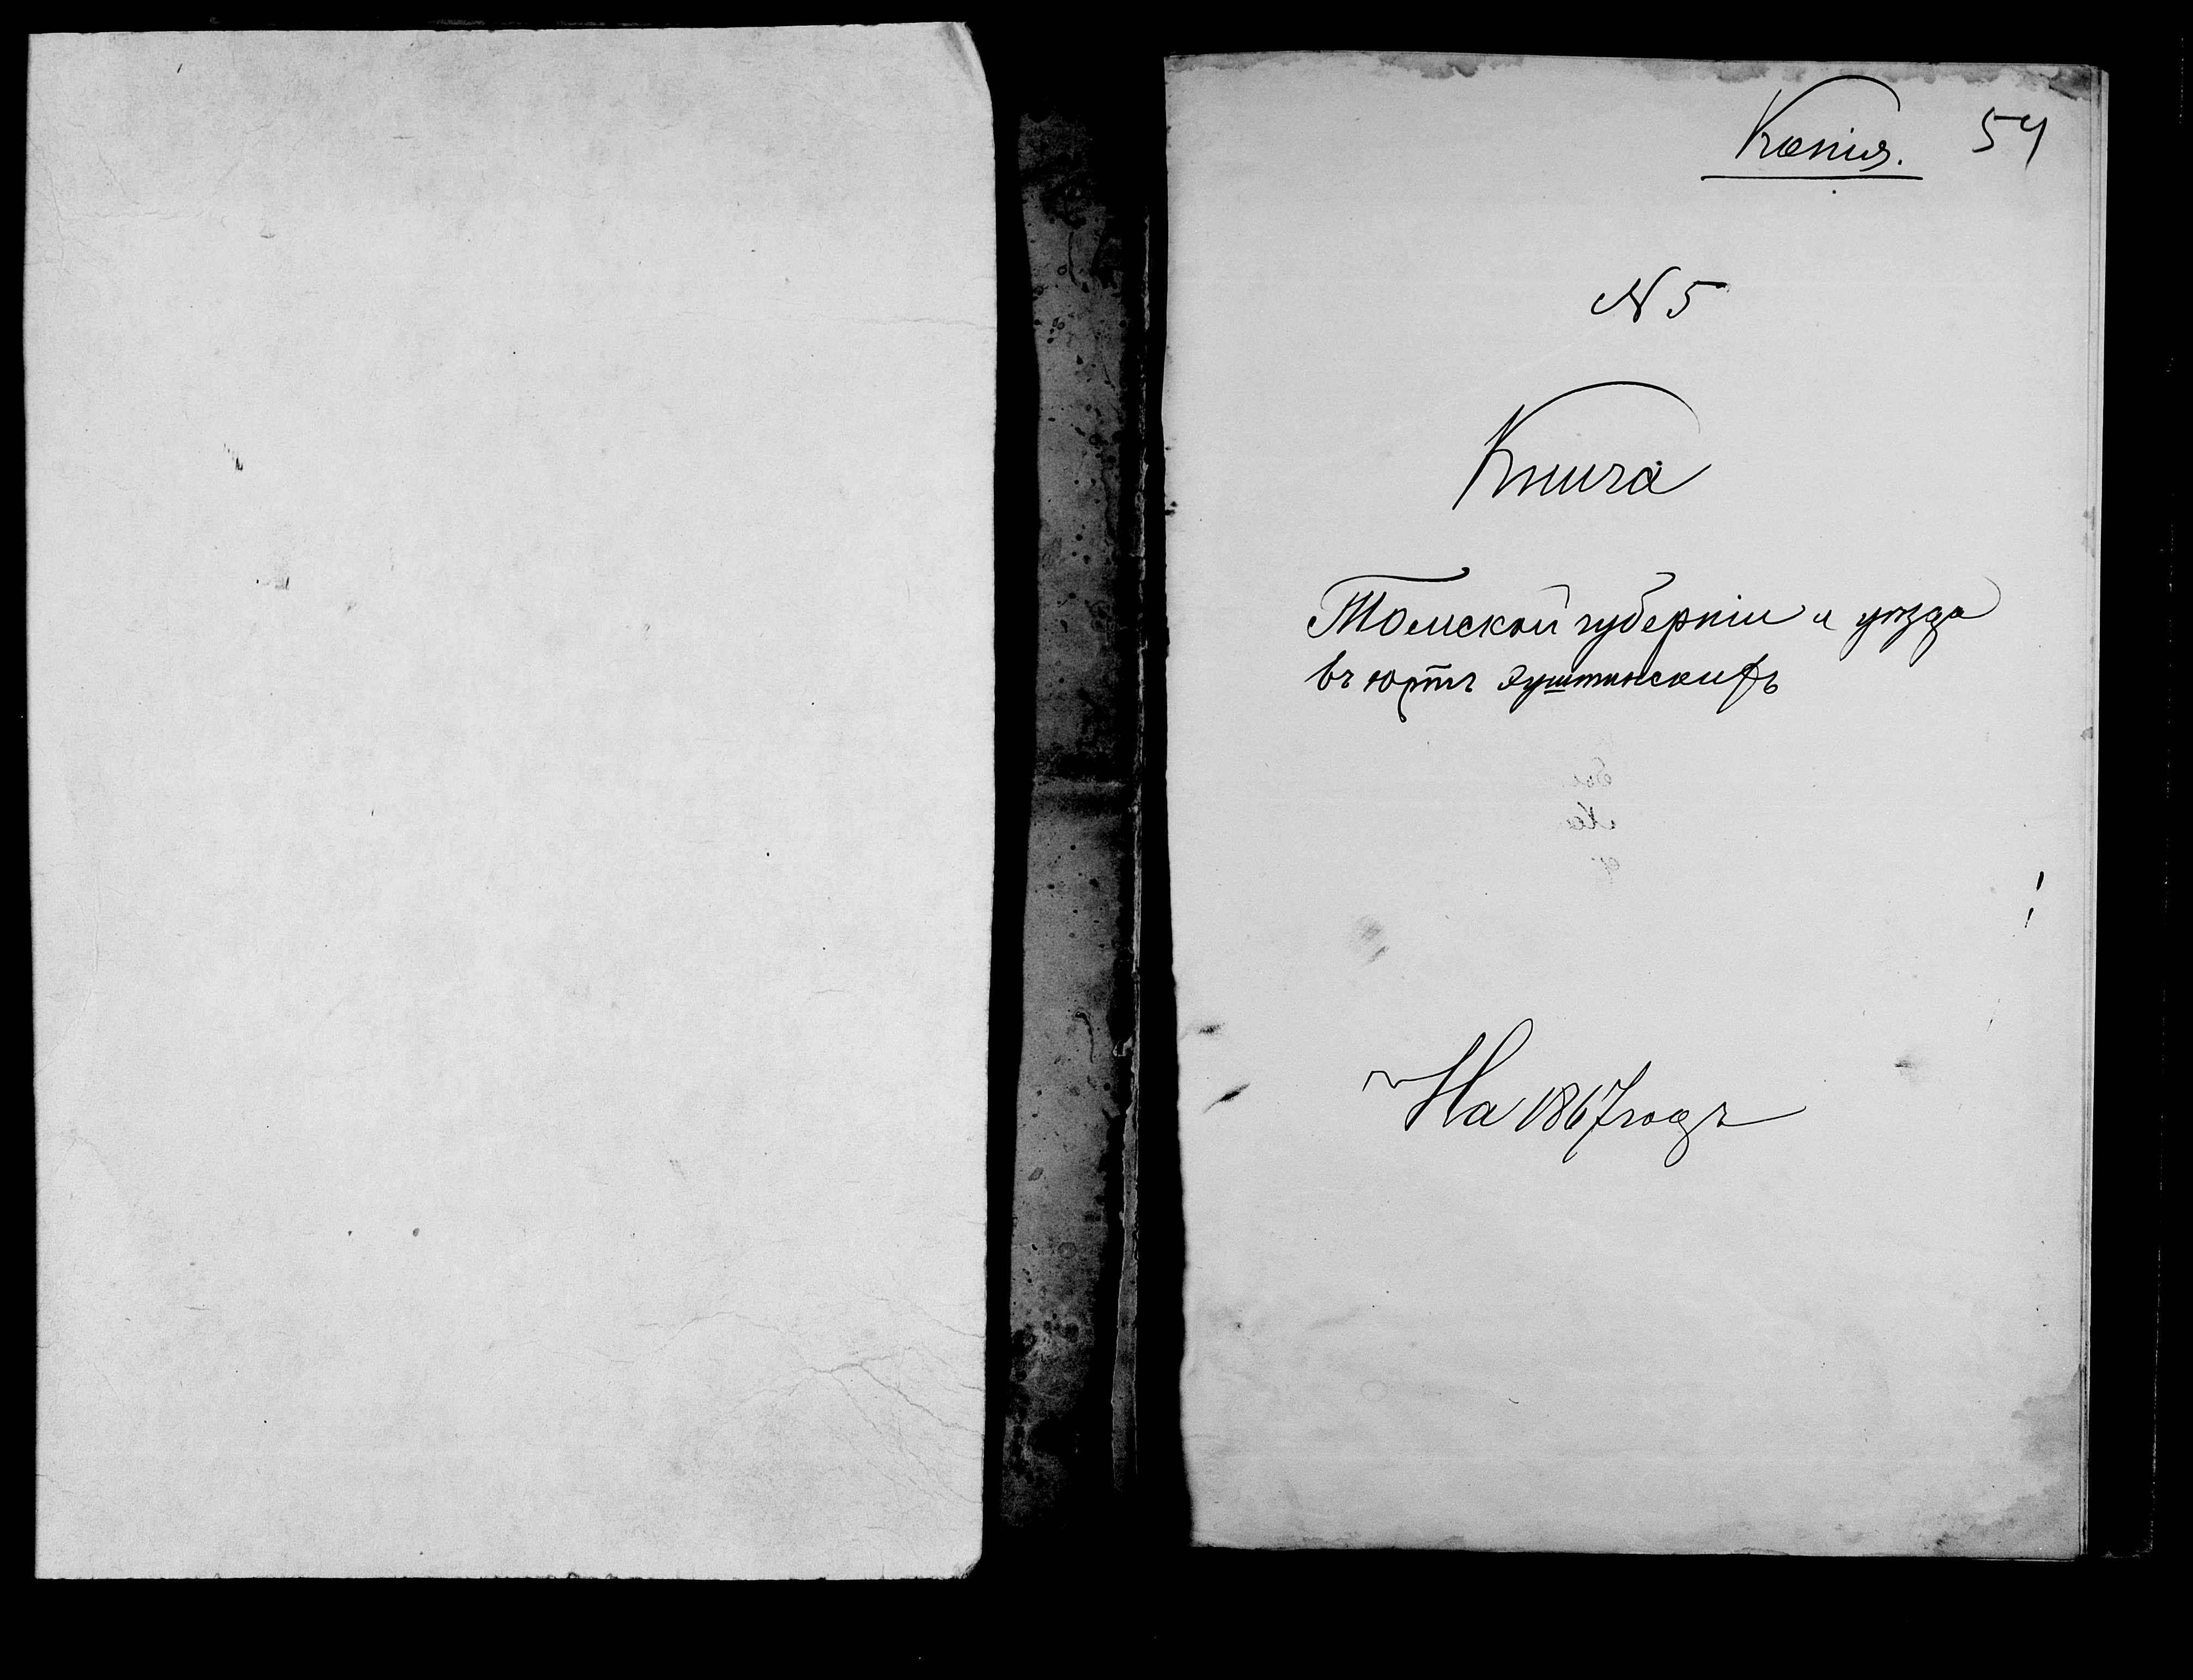 Копія. 54
N 5
Книга
Томской губерніи и уѣзда
въ юртъ эуштинскихъ
На 1867 годъ